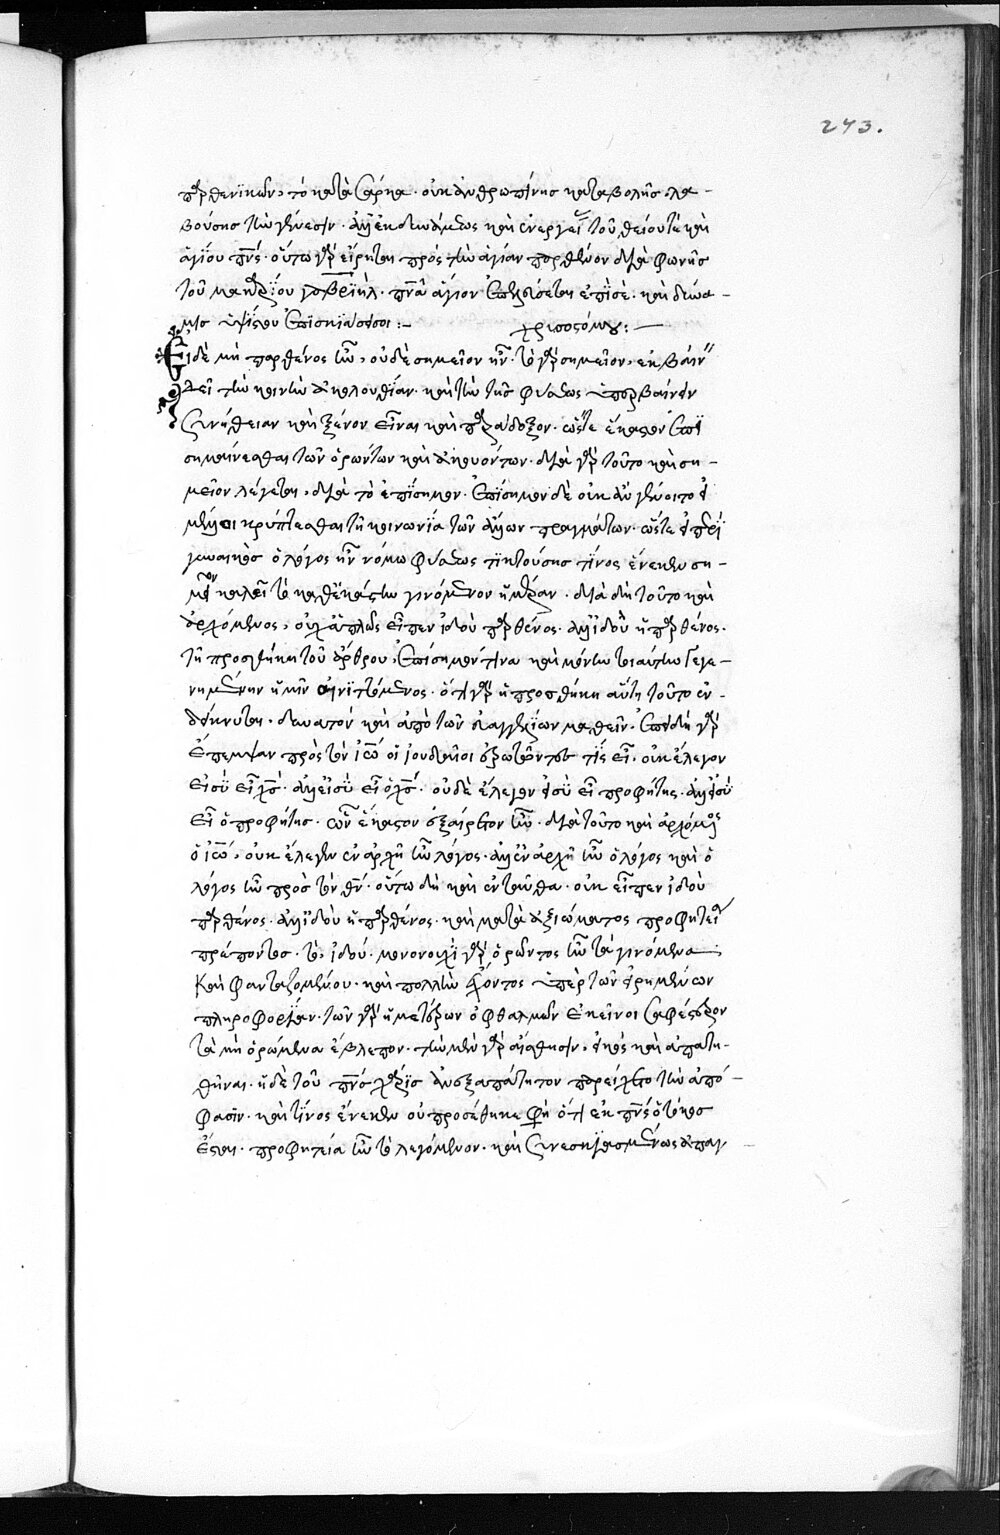 243.
παρθενικῶν, τὸ κατὰ σάρκα. οὐκ ἀνθρωπίνης καταβολῆς λα-
βούσης τὴν γένεσιν. ἀλλ' ἐκ δυνάμεως καὶ ἐνεργείας τοῦ θείου τε καὶ
ἁγίου πνς. οὕτω γὰρ εἴρηται πρὸς τὴν ἁγίαν παρθένον διὰ φωνῆς
τοῦ μακαρίου γαβριὴλ. πνα ἅγιον ἐπελεύσεται ἐπὶ σὲ. καὶ δύνα-
μις ὑψίστου ἐπισκιάσει σοι:- χρυσοστόμου:-
Εἰ δὲ μὴ παρθένος ἦν, οὐδὲ σημεῖον ἦν. τὸ γὰρ σημεῖον, ἐκβαίνειν
δεῖ τὴν κοινὴν ἀκολουθίαν. καὶ τὴν τῆς φύσεως ὑπερβαίνειν
συνήθειαν καὶ ξένον εἶναι καὶ παράδοξον. ὥστε ἕκαστον ἐπι
σημαίνεσθαι τῶν ὁρώντων καὶ ἀκουόντων. διὰ γὰρ τοῦτο καὶ ση-
μεῖον λέγεται, διὰ τὸ ἐπίσημον. ἐπίσημον δὲ οὐκ ἂν γένοιτο εἰ
μέλλοι κρύπτεσθαι τῇ κοινωνίᾳ τῶν ἄλλων πραγμάτων. ὥστε εἰ περὶ
γυναικὸς ὁ λόγος ἦν νόμῳ φύσεως τικτούσης τίνος ἕνεκεν ση-
μεῖον καλεῖ τὸ καθ' ἑκάστην γινόμενον ἡμέραν. διὰ δὴ τοῦτο καὶ
ἀρχόμενος, οὐχ ἁπλῶς εἶπεν ἰδοὺ παρθένος. ἀλλ' ἰδοὺ ἡ παρθένος.
τῇ προσθήκῃ τοῦ ἄρθρου, ἐπίσημόν τινα καὶ μόνην τοιαύτην γεγε-
νημένην ἡμῖν αἰνιττόμενος. ὅτι γὰρ ἡ προσθήκη αὕτη τοῦτο ἐν-
δείκνυται. δυνατὸν καὶ ἀπὸ τῶν εὐαγγελίων μαθεῖν. ἐπειδὴ γὰρ
ἔπεμψαν πρὸς τὸν ἰω οἱ ἰουδαῖοι ἐρωτῶντες τίς εἶ. οὐκ ἔλεγον
εἰ σὺ εἶ χς. ἀλλ' εἰ σὺ εἶ ὁ χς. οὐδὲ ἔλεγον εἰ σὺ εἶ προφήτης. ἀλλ' εἰ σὺ
εἶ ὁ προφήτης. ὧν ἕκαστον ἐξαίρετον ἦν. διὰ τοῦτο καὶ ἀρχόμενος
ὁ ἰω, οὐκ ἔλεγεν ἐν ἀρχῇ ἦν λόγος. ἀλλ' ἐν ἀρχῇ ἦν ὁ λόγος καὶ ὁ
λόγος ἦν πρὸς τὸν θν. οὕτω δὴ καὶ ἐνταῦθα. οὐκ εἶπεν ἰδοὺ
παρθένος. ἀλλ' ἰδοὺ ἡ παρθένος. καὶ μετὰ ἀξιώματος προφητείᾳ
πρέποντος. τὸ, ἰδού. μονονουχὶ γὰρ ὁρῶντος ἦν τὰ γινόμενα
καὶ φανταζομένου. καὶ πολλὴν ἔχοντος ὑπὲρ τῶν εἰρημένων
πληροφορίαν. τῶν γὰρ ἡμετέρων ὀφθαλμῶν ἐκεῖνοι σαφέστερον
τὰ μὴ ὁρώμενα ἔβλεπον. τὴν μὲν γὰρ αἴσθησιν, εἰκὸς καὶ ἀπατη-
θῆναι. ἡ δὲ τοῦ πνς χάρις ἀνεξαπάτητον παρείχετο τὴν ἀπό-
φασιν. καὶ τίνος ἕνεκεν οὐ προσέθηκε φη ὅτι ἐκ πνς ὁ τόκος
ἔσται. προφητεία ἦν τὸ λεγόμενον. καὶ συνεσκιασμένως ἀπαγ-